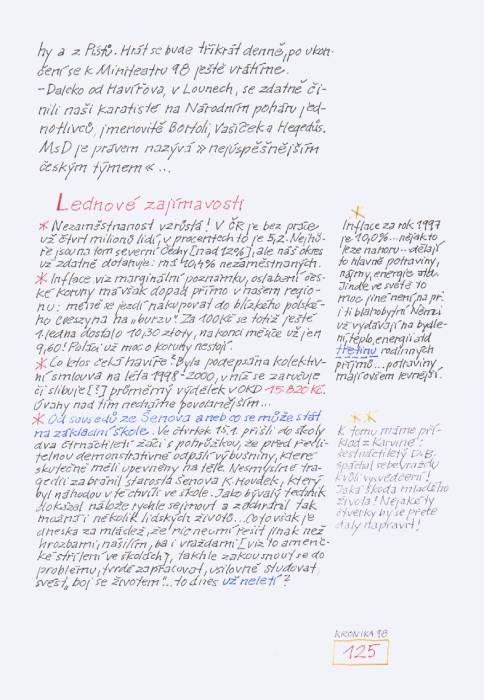 hy a z Pístů. Hrát se bude třikrát denně, po ukon-
čení se k Miniteatru 98 ještě vrátíme.
- Daleko od Havířova, v Lounech, se zdatně či-
nili naši karatisté na Národním poháru jed-
notlivců, jmenovitě Bortoli, Vašíček a Hegedüs.
MsD je právem nazývá »nejúspěšnějším
českým týmem« ...
Lednové zajímavosti
* Nezaměstnanost vzrůstá! V ČR je bez práce
už čtvrt milionů lidí, v procentech to je 5,2. Nejhů-
ře jsou na tom severní Čechy [nad 12%], ale náš okres
už zdatně dotahuje: má 10,4% nezaměstnaných.
* Inflace viz marginální poznámku, oslabení čes-
ké koruny má však dopad přímo v našem regio-
nu: méně se jezdí nakupovat do blízkého polské-
ho Cieszyna na „burzu". Za 100Kč se totiž ještě
1. ledna dostalo 10,30 złoty, na konci měsíce už jen
9,60! Poláci už moc o koruny nestojí.
* Co letos čeká havíře? Byla podepsána kolektiv-
ní smlouva na léta 1998-2000, v níž se zaručuje
či slibuje [?] průměrný výdělek v OKD 15.820 Kč.
Úvahy nad tím nechejme povolanějším...
* Od sousedů ze Šenova aneb co se může stát
na základní škole. Ve čtvrtek 15.1. přišli do školy
dva čtrnáctiletí žáci s pohrůžkou, že před ředi-
telnou demonstrativně odpálí výbušniny, které
skutečně měli upevněny na těle. Nesmyslné tra-
gedii zabránil starosta Šenova K. Houdek, který
byl náhodou v té chvíli ve škole. Jako bývalý technik
dokázal nálože rychle sejmout a zachránil tak
možná i několik lidských životů... Co to však je
dneska za mládež, že nic neumí řešit jinak než
hrozbami, násilím, ba i vraždami [viz to americ-
ké střílení ve školách], takhle zakousnout se do
problému, tvrdě zapracovat, usilovně studovat,
svést „boj se životem"... to dnes už neletí?
*
Inflace za rok 1997
je 10,0% ... nějak to
leze nahoru... dělají
to hlavně potraviny,
nájmy, energie atd.
Jinde ve světě to
moc jiné není, na př.
i ti blahobytní Němci
už vydávají na bydle-
ní, teplo, energii atd
třetinu rodinných
příjmů... potraviny
mají ovšem levnější.
* *
K tomu máme pří-
klad z Karviné:
šestnáctiletý D.B.
spáchal sebevraždu
kvůli vysvědčení!
Jaká škoda mladého
života! Nějaké ty
čtverky by se přete
daly napravit!
KRONIKA 98
125